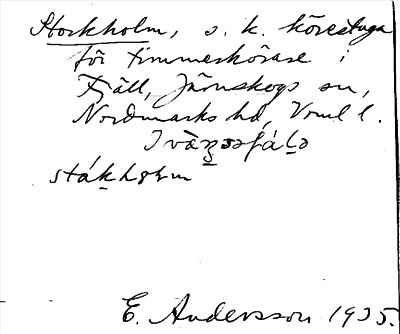 Stockholm, s. k. körestuga
för timmerkörare i
Fjäll, Järnskogs sn,
Nordmarks hd, Vrml l.
stákholm
E. Andersson 1935.